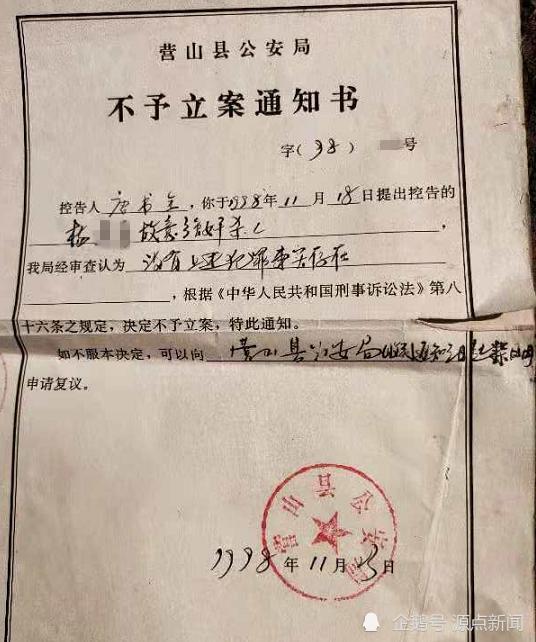 营山县公安局
不予立案通知书
字(98) 号
控告人唐书全,你于1998年11月18日提出控告的
故意强奸杀人
我局经审查认为 没有上述犯罪事实存在
,根据《中华人民共和国刑事诉讼法》第八
十六条之规定,决定不予立案,特此通知。
如不服本决定,可以向 营山县公安局
申请复议。
营山县公安局
1998年11月23日
企鹅号 源点新闻